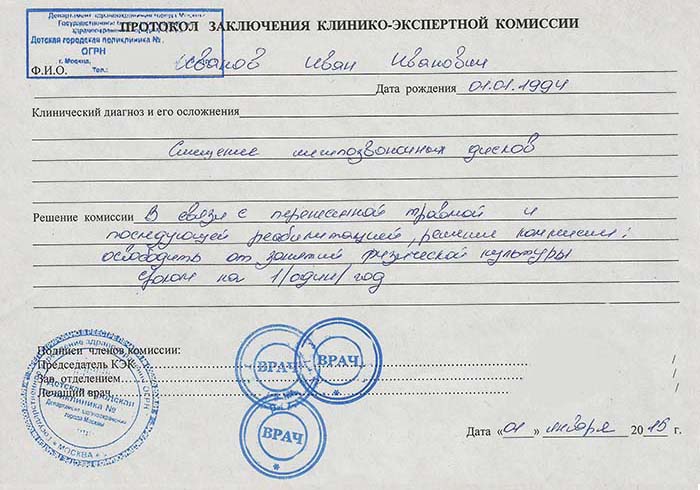 Департамент здравоохранения города Москвы
Государственное бюджетное
здравоохранения
Детская городская поликлиника №
ОГРН
г. Москва,
Тел.:
ПРОТОКОЛ ЗАКЛЮЧЕНИЯ КЛИНИКО-ЭКСПЕРТНОЙ КОМИССИИ
Ф.И.О. Иванов Иван Иванович
Дата рождения 01.01.1994
Клинический диагноз и его осложнения
Смещение межпозвоночных дисков
Решение комиссии В связи с перенесенной травмой и
последующей реабилитацией, решение комиссии:
освободить от занятий физической культуры
сроком на 1/один/ год
Подписи членов комиссии:
Председатель КЭК
Зав. отделением
Лечащий врач
ВРАЧ
ВРАЧ
ВРАЧ
Детская городская
поликлиника №
Департамент здравоохранения
города Москвы
МОСКВА
Дата «01» января 2015 г.